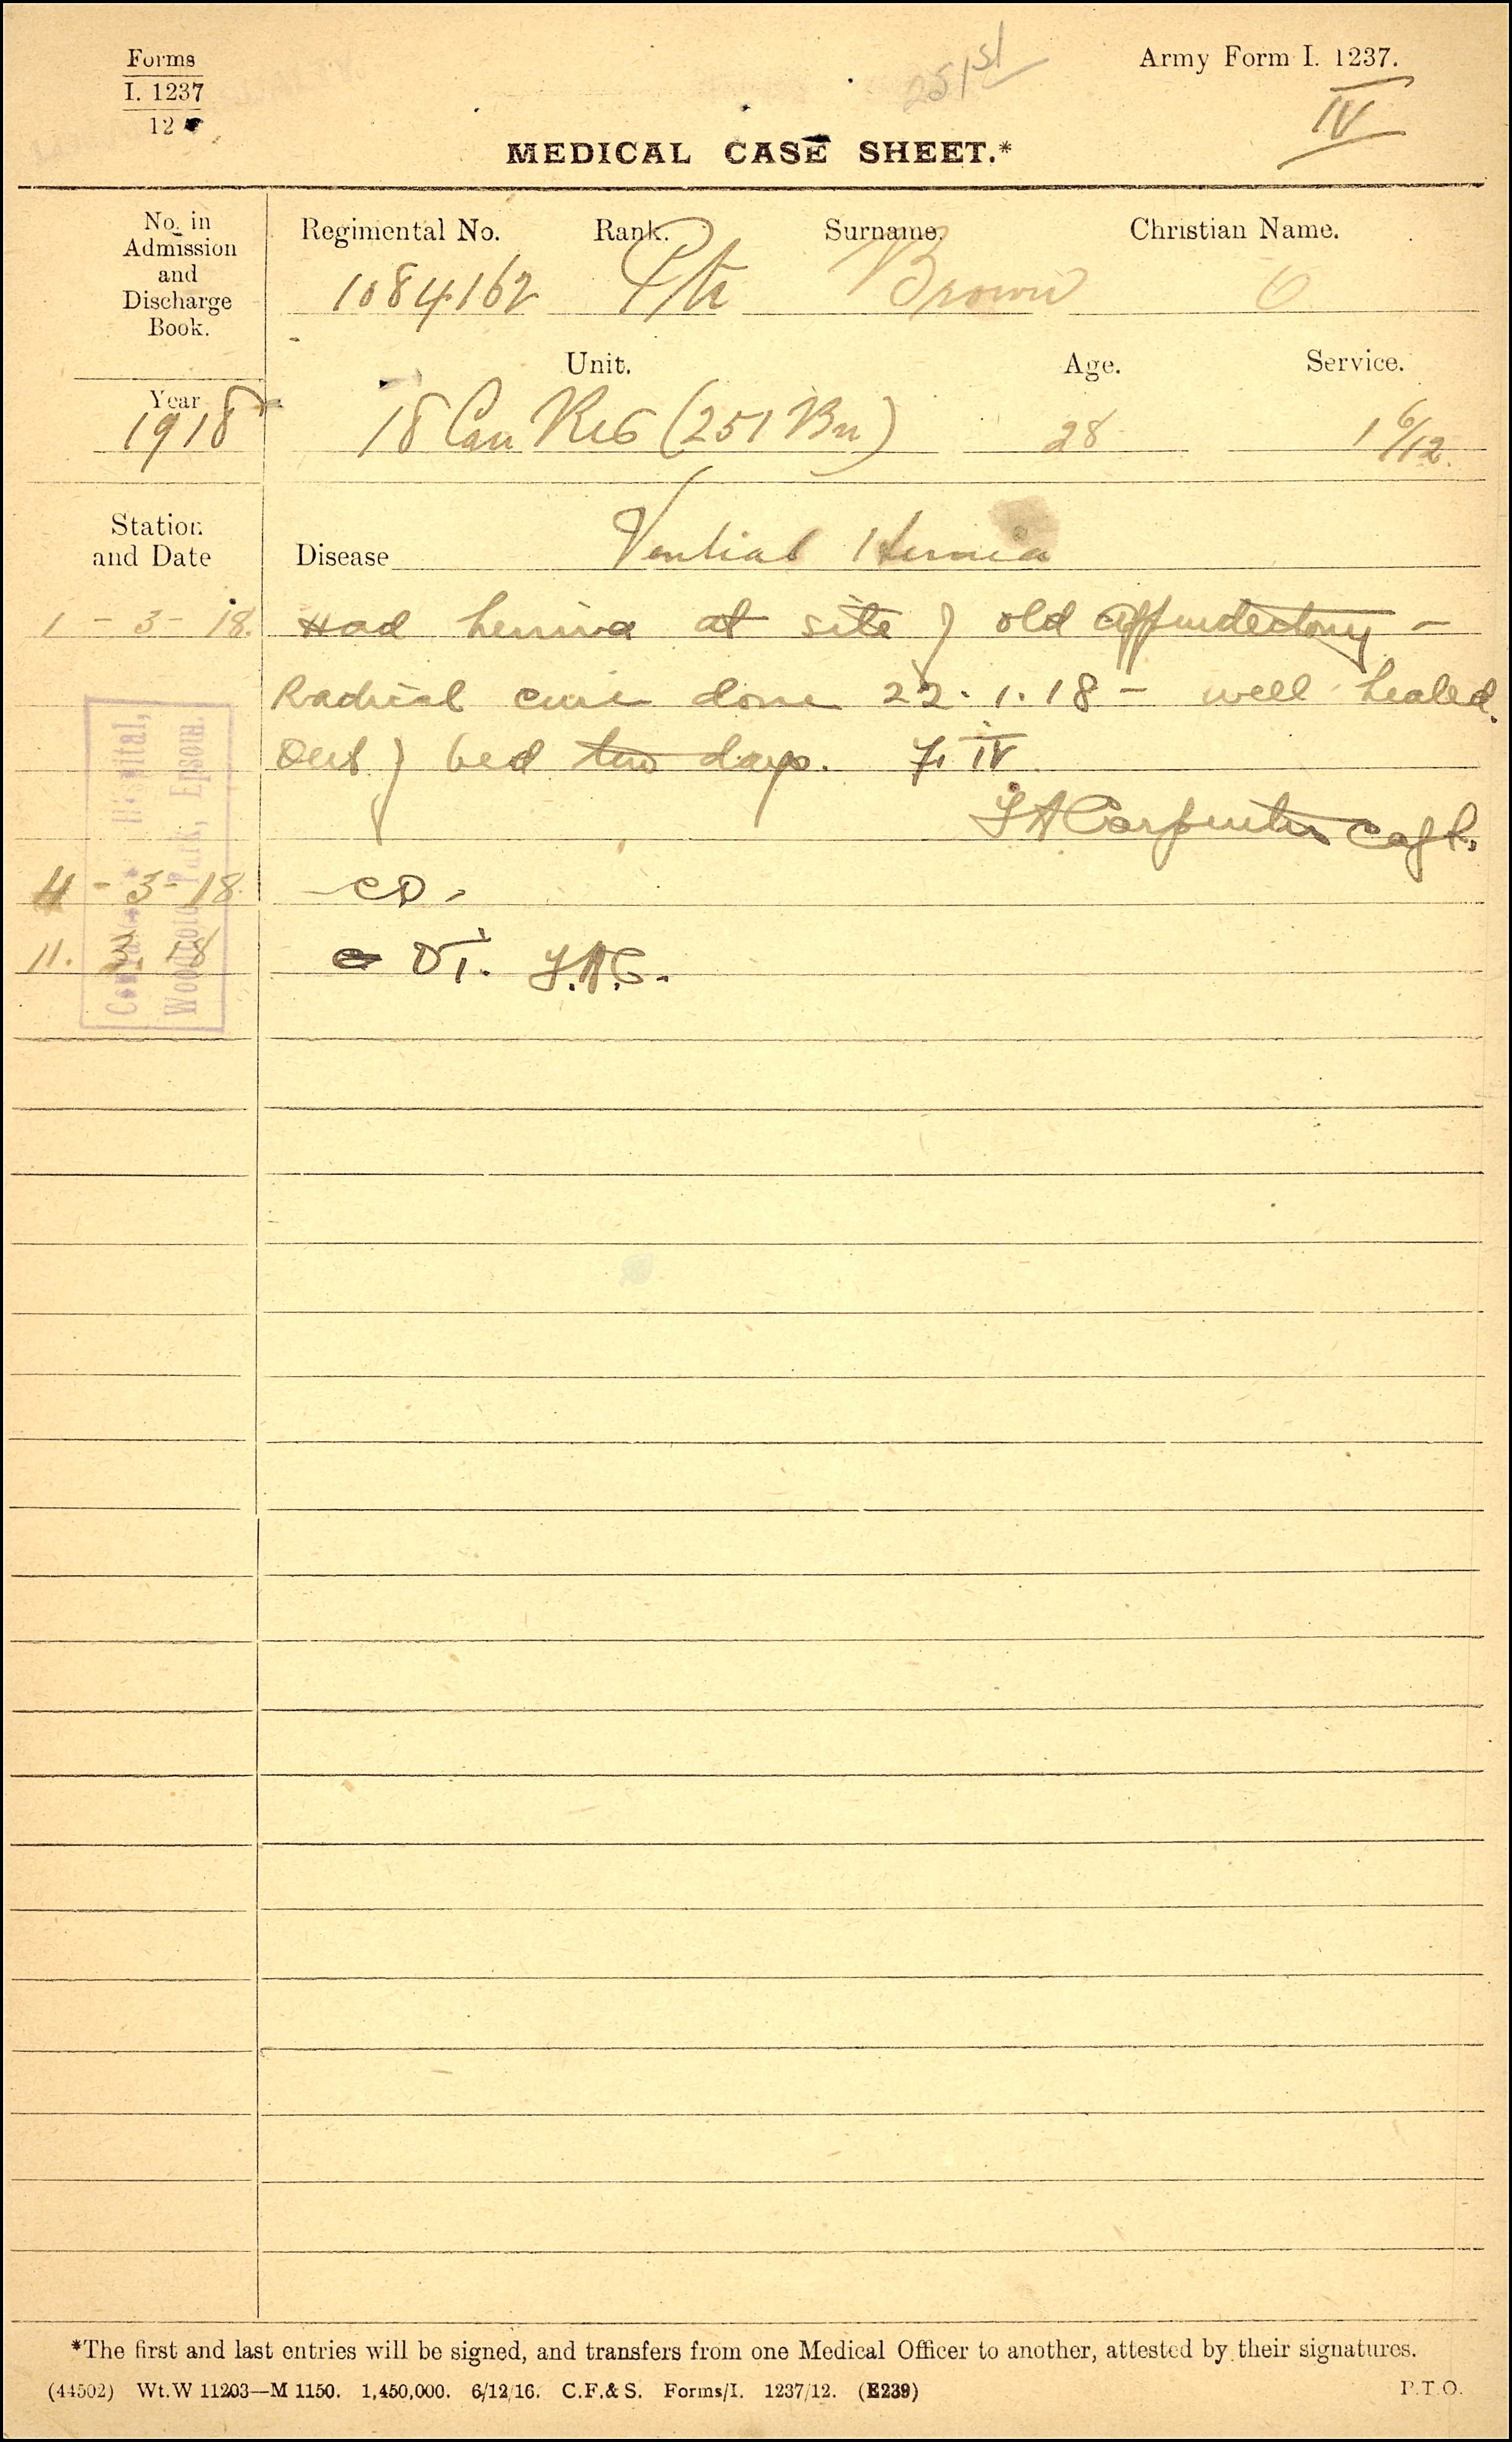 Forms
I. 1237
12
251st
Army Form I. 1237.
IV
MEDICAL CASE SHEET.*
No. in
Admission
and
Discharge
Book.
Regimental No. Rank. Surname. Christian Name.
1084162 Pte Brown O
Unit. Age. Service.
Year
1918
18 Can Res (251 Bn) 28 1 6/12
Station
and Date
Disease Ventral Hernia
1-3-18. Had hernia at site of old appendectomy -
Radical cure done 22.1.18 - well healed.
Out of bed two days. IV
Carpenter Capt.
Hospital,
Woodcote Park, Epsom.
4-3-18.
11.3.18 DI.
*The first and last entries will be signed, and transfers from one Medical Officer to another, attested by their signatures.
(44502) Wt.W 11203—M 1150. 1,450,000. 6/12/16. C.F.& S. Forms/I. 1237/12. (E239)
P.T.O.